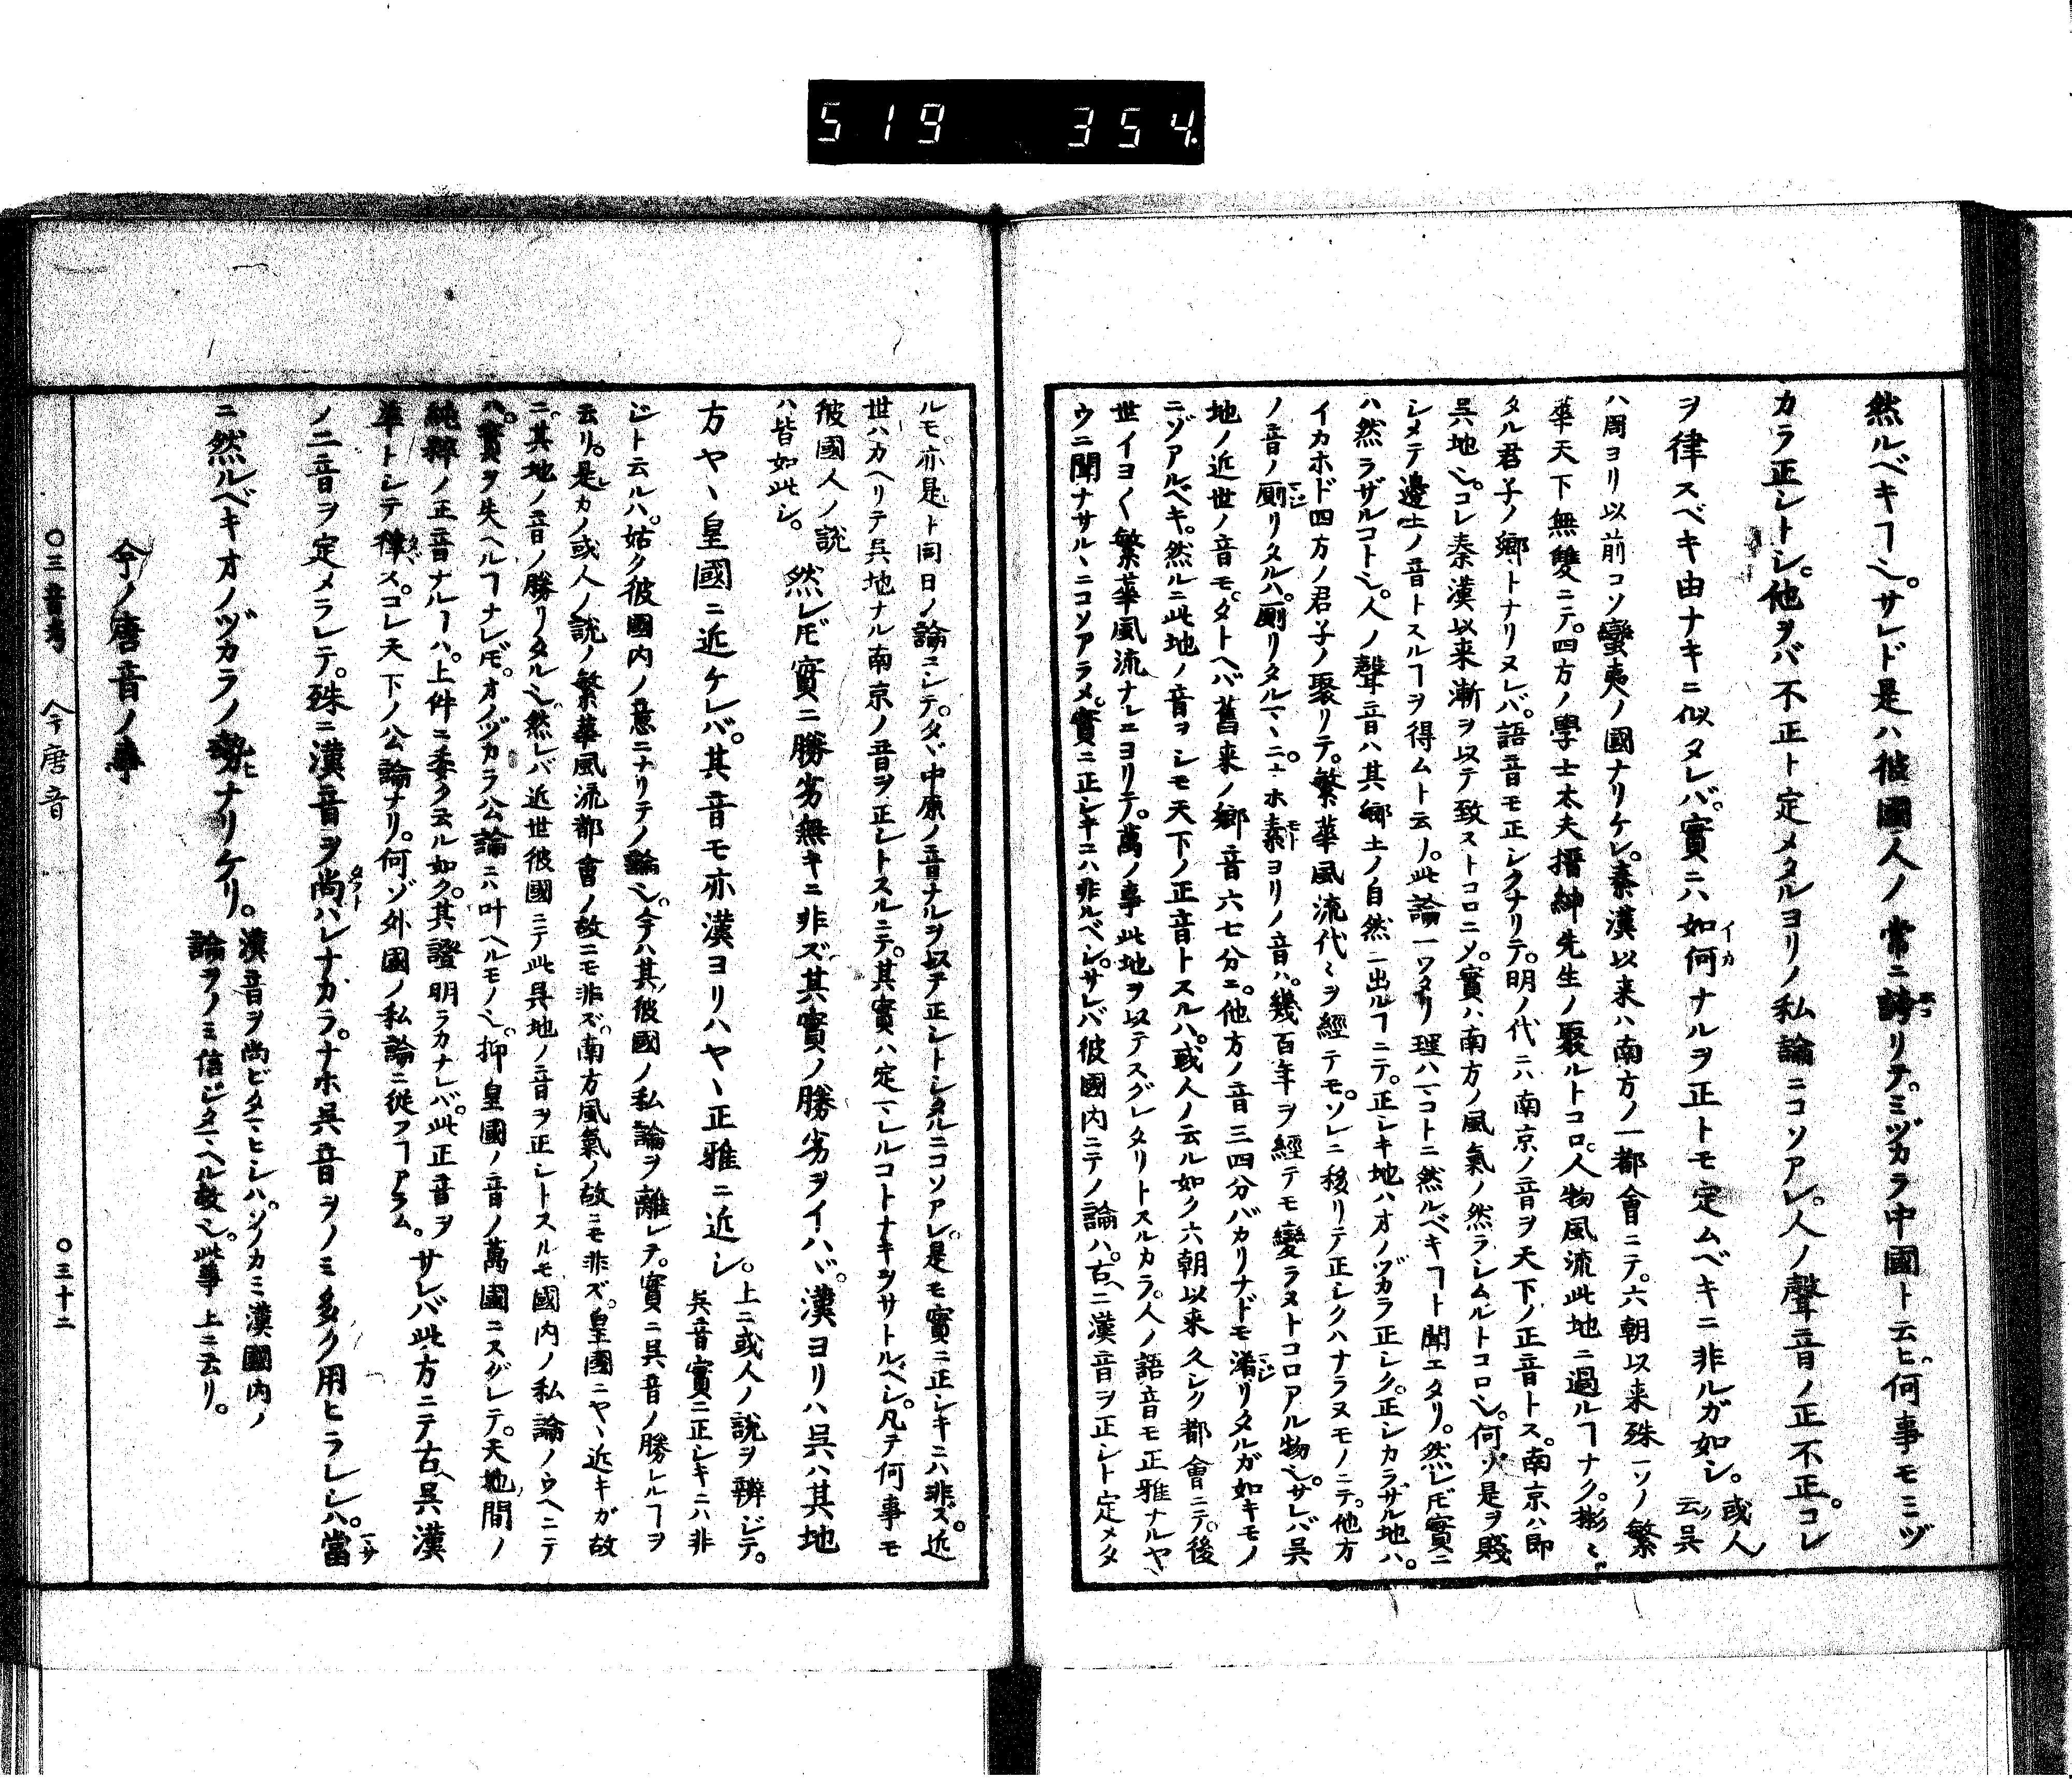 519 354
然ルベキヿ也。サレド是ハ彼國人ノ常ニ誇リテ。ミヅカラ中國ト云ヒ。何事モミヅ
カラ正シトシ。他ヲバ不正ト定メタルヨリノ私論ニコソアレ。人ノ聲音ノ正不正。コレ
ヲ律スベキ由ナキニ似タレバ。實ニハ如何ナルヲ正トモ定ムベキニ非ルガ如シ。或人
云ノ呉
ハ周ヨリ以前コソ蠻夷ノ國ナリケレ。秦漢以来ハ南方ノ一都會ニテ。六朝以来殊ニソノ繁
華天下無雙ニテ。四方ノ學士太夫搢紳先生ノ聚ルトコロ。人物風流此地ニ過ルヿナク。彬々
タル君子ノ郷トナリヌレバ。語音モ正シクナリテ。明ノ代ニハ南京ノ音ヲ天下ノ正音トス。南京ハ即
呉地也。コレ秦漢以来漸ヲ以テ致ストコロニメ。實ハ南方ノ風氣ノ然ラシムルトコロ也。何ゾ是ヲ賤
シメテ邊土ノ音トスルヿヲ得ムト云リ。此論一ワタリ理ハマコトニ然ルベキヿト聞エタリ。然レ𪜈實ニ
ハ然ラザルコト也。人ノ聲音ハ其郷土ノ自然ニ出ルヿニテ。正シキ地ハオノヅカラ正シク。正シカラザル地ハ。
イカホド四方ノ君子ノ聚リテ。繁華風流代々ヲ經テモ。ソレニ移リテ正シクハナラヌモノニテ。他方
ノ音ノ厠リタルハ。厠リタルマヽニ。ナホ素ヨリノ音ハ。幾百年ヲ經テモ變ラヌトコロアル物也。サレバ呉
地ノ近世ノ音モ。タトヘバ舊来ノ郷音六七分ニ。他方ノ音三四分バカリナドモ淆リタルガ如キモノ
ニゾアルベキ。然ルニ此地ノ音ヲシモ天下ノ正音トスルハ。或人ノ云ル如ク六朝以来久シク都會ニテ。後
世イヨ〱繁華風流ナルニヨリテ。萬ノ事此地ヲ以テスグレタリトスルカラ。人ノ語音モ正雅ナルヤ
ウニ聞ナサルヽニコソアラメ。實ニ正シキニハ非ルベシ。サレバ彼國内ニテノ論ハ。古ヘニ漢音ヲ正シト定メタ
ルモ。亦是ト同日ノ論ニシテ。タヾ中原ノ音ナルヲ以テ正シトシタルニコソアレ。是モ實ニ正シキニハ非ズ。近
世ハカヘリテ呉地ナル南京ノ音ヲ正シトスルニテ。其實ハ定マレルコトナキヲサトルベシ。凡テ何事モ
彼國人ノ説
ハ皆如此シ。然レ𪜈實ニ勝劣無キニ非ズ。其實ノ勝劣ヲイハヾ。漢ヨリハ呉ハ其地
方ヤヽ皇國ニ近ケレバ。其音モ亦漢ヨリハヤヽ正雅ニ近シ。上ニ或人ノ説ヲ辨ジテ。
呉音實ニ正シキニハ非
ジト云ルハ。姑ク彼國内ノ意ニナリテノ論也。今ハ其彼國ノ私論ヲ離レテ。實ニ呉音ノ勝レルヿヲ
云リ。是カノ或人ノ説ノ繁華風流都會ノ故ニモ非ズ。南方風氣ノ故ニモ非ズ。皇國ニヤヽ近キガ故
ニ。其地ノ音ノ勝リタル也。然レバ近世彼國ニテ此呉地ノ音ヲ正シトスルモ國内ノ私論ノウヘニテ
ハ。實ヲ失ヘルヿナレ𪜈。オノヅカラ公論ニハ叶ヘルモノ也。抑皇國ノ音ノ萬國ニスグレテ。天地間ノ
純粹ノ正音ナルヿハ。上件ニ委ク云ル如ク。其證明ラカナレバ。此正音ヲ
準トシテ律ス。コレ天下ノ公論ナリ。何ゾ外國ノ私論ニ從フヿアラム。サレバ此方ニテ古ヘ呉漢
ノ二音ヲ定メラレテ。殊ニ漢音ヲ尚ハレナカラ。ナホ呉音ヲノミ多ク用ヒラレシハ。當
ニ然ルベキオノヅカラノ勢ヒナリケリ。漢音ヲ尚ビタマヒシハ。ソノカミ漢國内ノ
論ヲノミ信ジタマヘル故也。此事上ニ云リ。
今ノ唐音ノ事
〇三音考 今ノ唐音 〇三十二